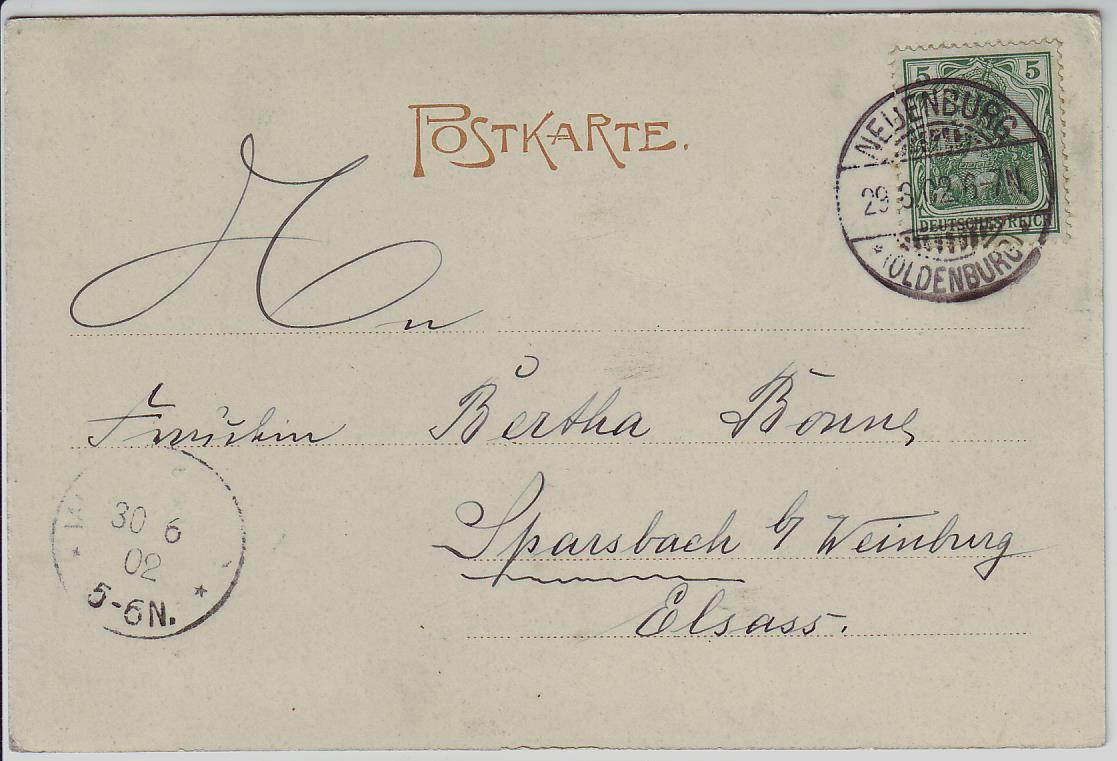 POSTKARTE.
5 5
NEUENBURG
29.6.02 6-7N.
DEUTSCHES REICH
* (OLDENBURG)
An
Fräulein Bertha Bonne
Sparsbach b/ Weinburg
Elsass.
30 6
02
* 5-6N. *